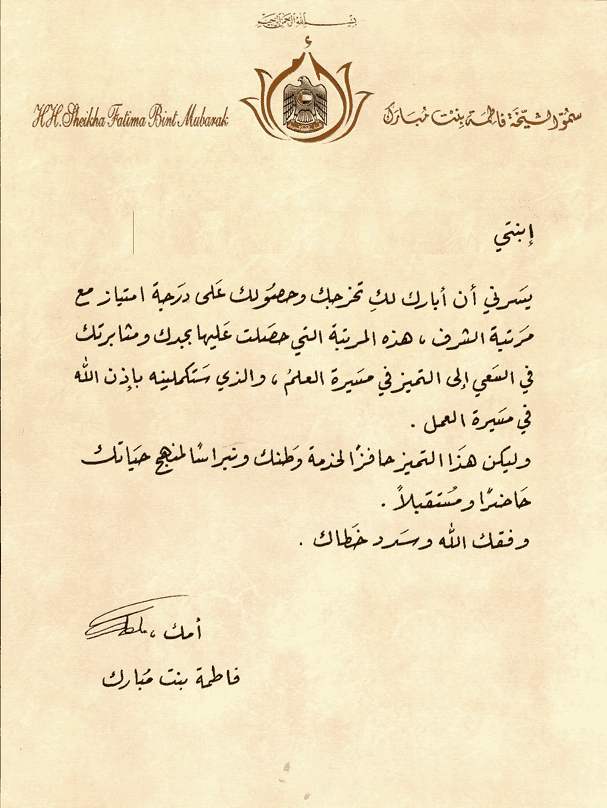 بسم الله الرحمن الرحيم
H.H. Sheikha Fatima Bint Mubarak
سمو الشيخة فاطمة بنت مبارك
إبنتي
يسرني أن أبارك لكِ تخرجك وحصولك على درجة امتياز مع
مرتبة الشرف ، هذه المرتبة التي حصلت عليها بجدك ومثابرتك
في السعي إلى التميز في مسيرة العلم ، والذي ستكملينه بإذن الله
في مسيرة العمل .
وليكن هذا التميز حافزًا لخدمة وطنك ونبراسًا لمنهج حياتك
حاضرًا ومستقبلاً .
وفقك الله وسدد خطاك .
أمك ،
فاطمة بنت مبارك